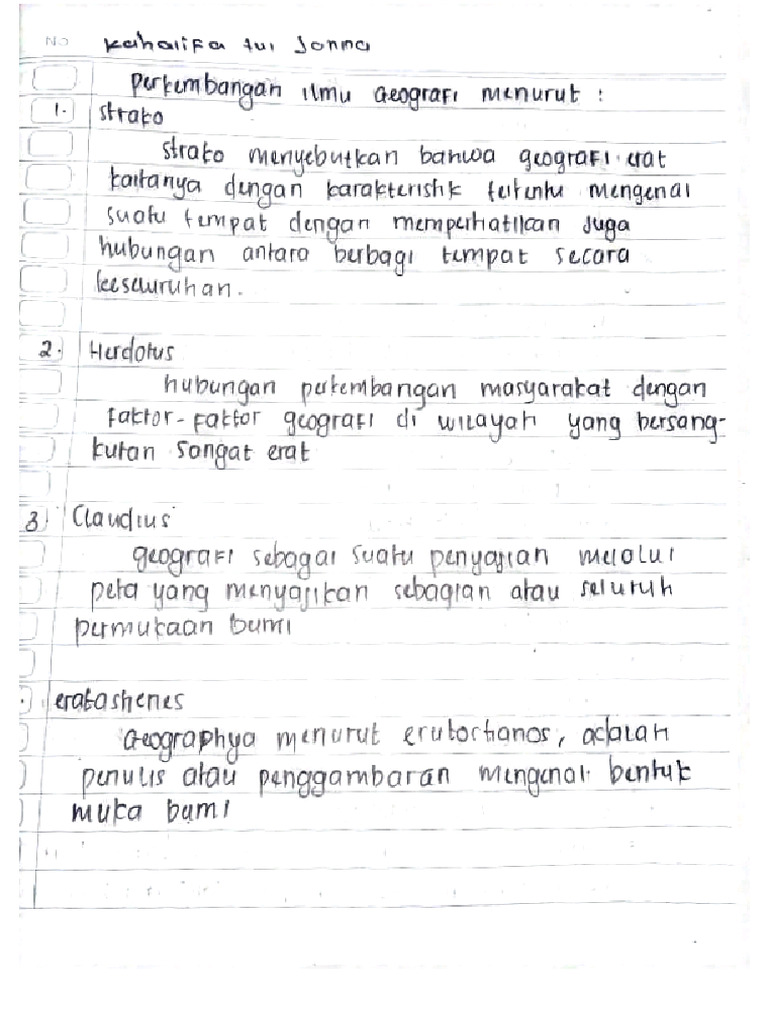 No Kahalifa tul Janna
Perkembangan ilmu Geografi menurut :
1. Strabo
Strabo menyebutkan bahwa geografi erat
kaitanya dengan karakteristik tertentu mengenai
suatu tempat dengan memperhatikan Juga
hubungan antara berbagi tempat secara
keseluruhan.
2. Herdotus
hubungan perkembangan masyarakat dengan
faktor-faktor geografi di wilayah yang bersang-
kutan sangat erat
3 Claudius
geografi sebagai suatu penyajian melalui
peta yang menyajikan sebagian atau seluruh
permukaan bumi
. eratashenes
Geographya menurut erutochanos, adalah
penulis atau penggambaran mengenai bentuk
muka bumi